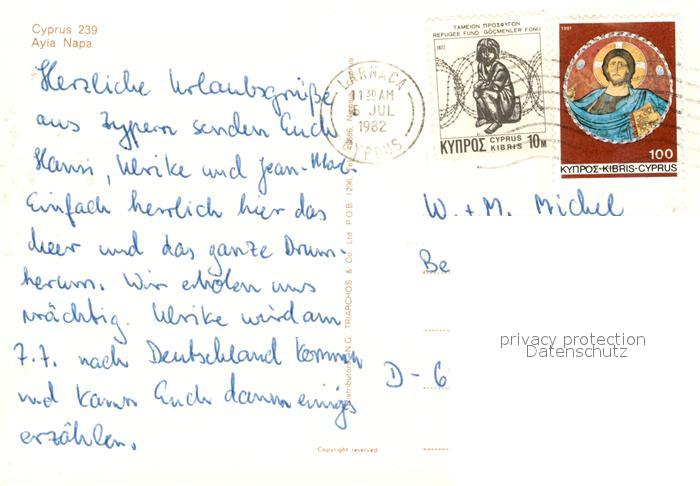 Cyprus 239
Ayia Napa
Herzliche Urlaubsgrüße
aus Zypern senden Euch
Hansi, Ulrike und Jean-Marc
Einfach herrlich hier das
Meer und das ganze Drum-
herum. Wir erholen uns
prächtig. Ulrike wird am
7.7. nach Deutschland kommen
und kann Euch dann einiges
erzählen.
Distributors: N.G. TRIARCHOS & Co. Ltd P.O.B. 1296, Tel.
Copyright reserved
LARNACA
11 30 AM
6 JUL
1982
CYPRUS
ΤΑΜΕΙΟΝ ΠΡΟΣΦΥΓΩΝ
REFUGEE FUND GÖÇMENLER FONU
1977
ΚΥΠΡΟΣ CYPRUS KIBRIS 10M
1981
100
ΚΥΠΡΟΣ-KIBRIS-CYPRUS
W. + M. Michel
Be
D - 6
privacy protection
Datenschutz